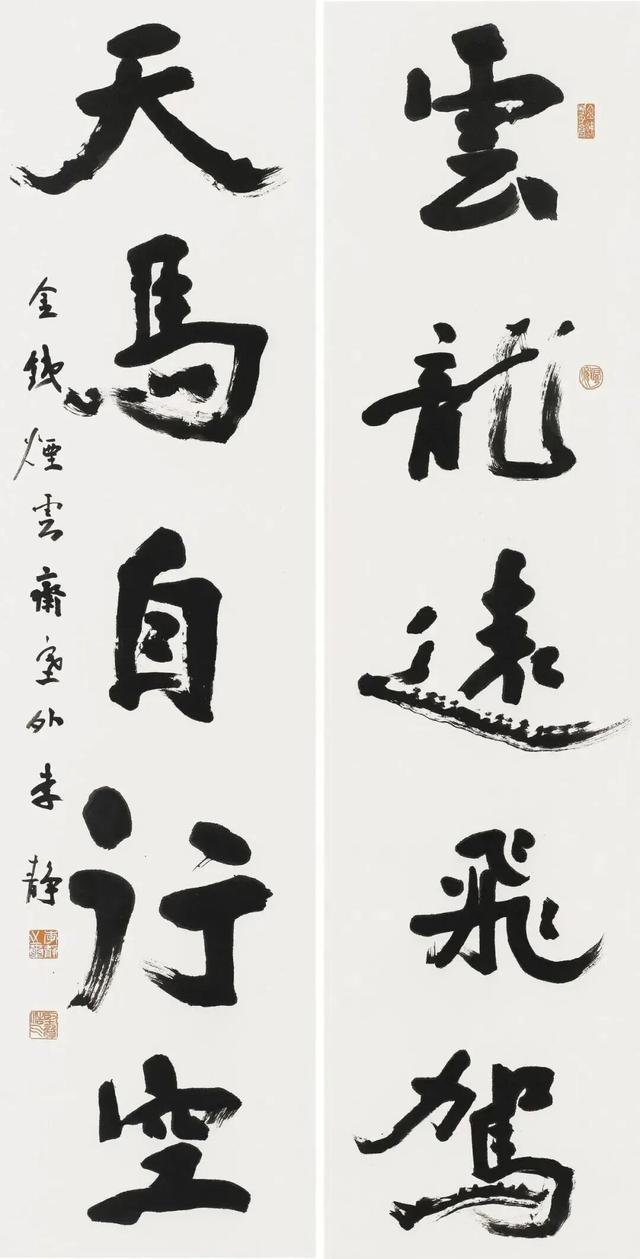 雲龍遠飛駕
天馬自行空
金錢煙雲齋塞外李靜